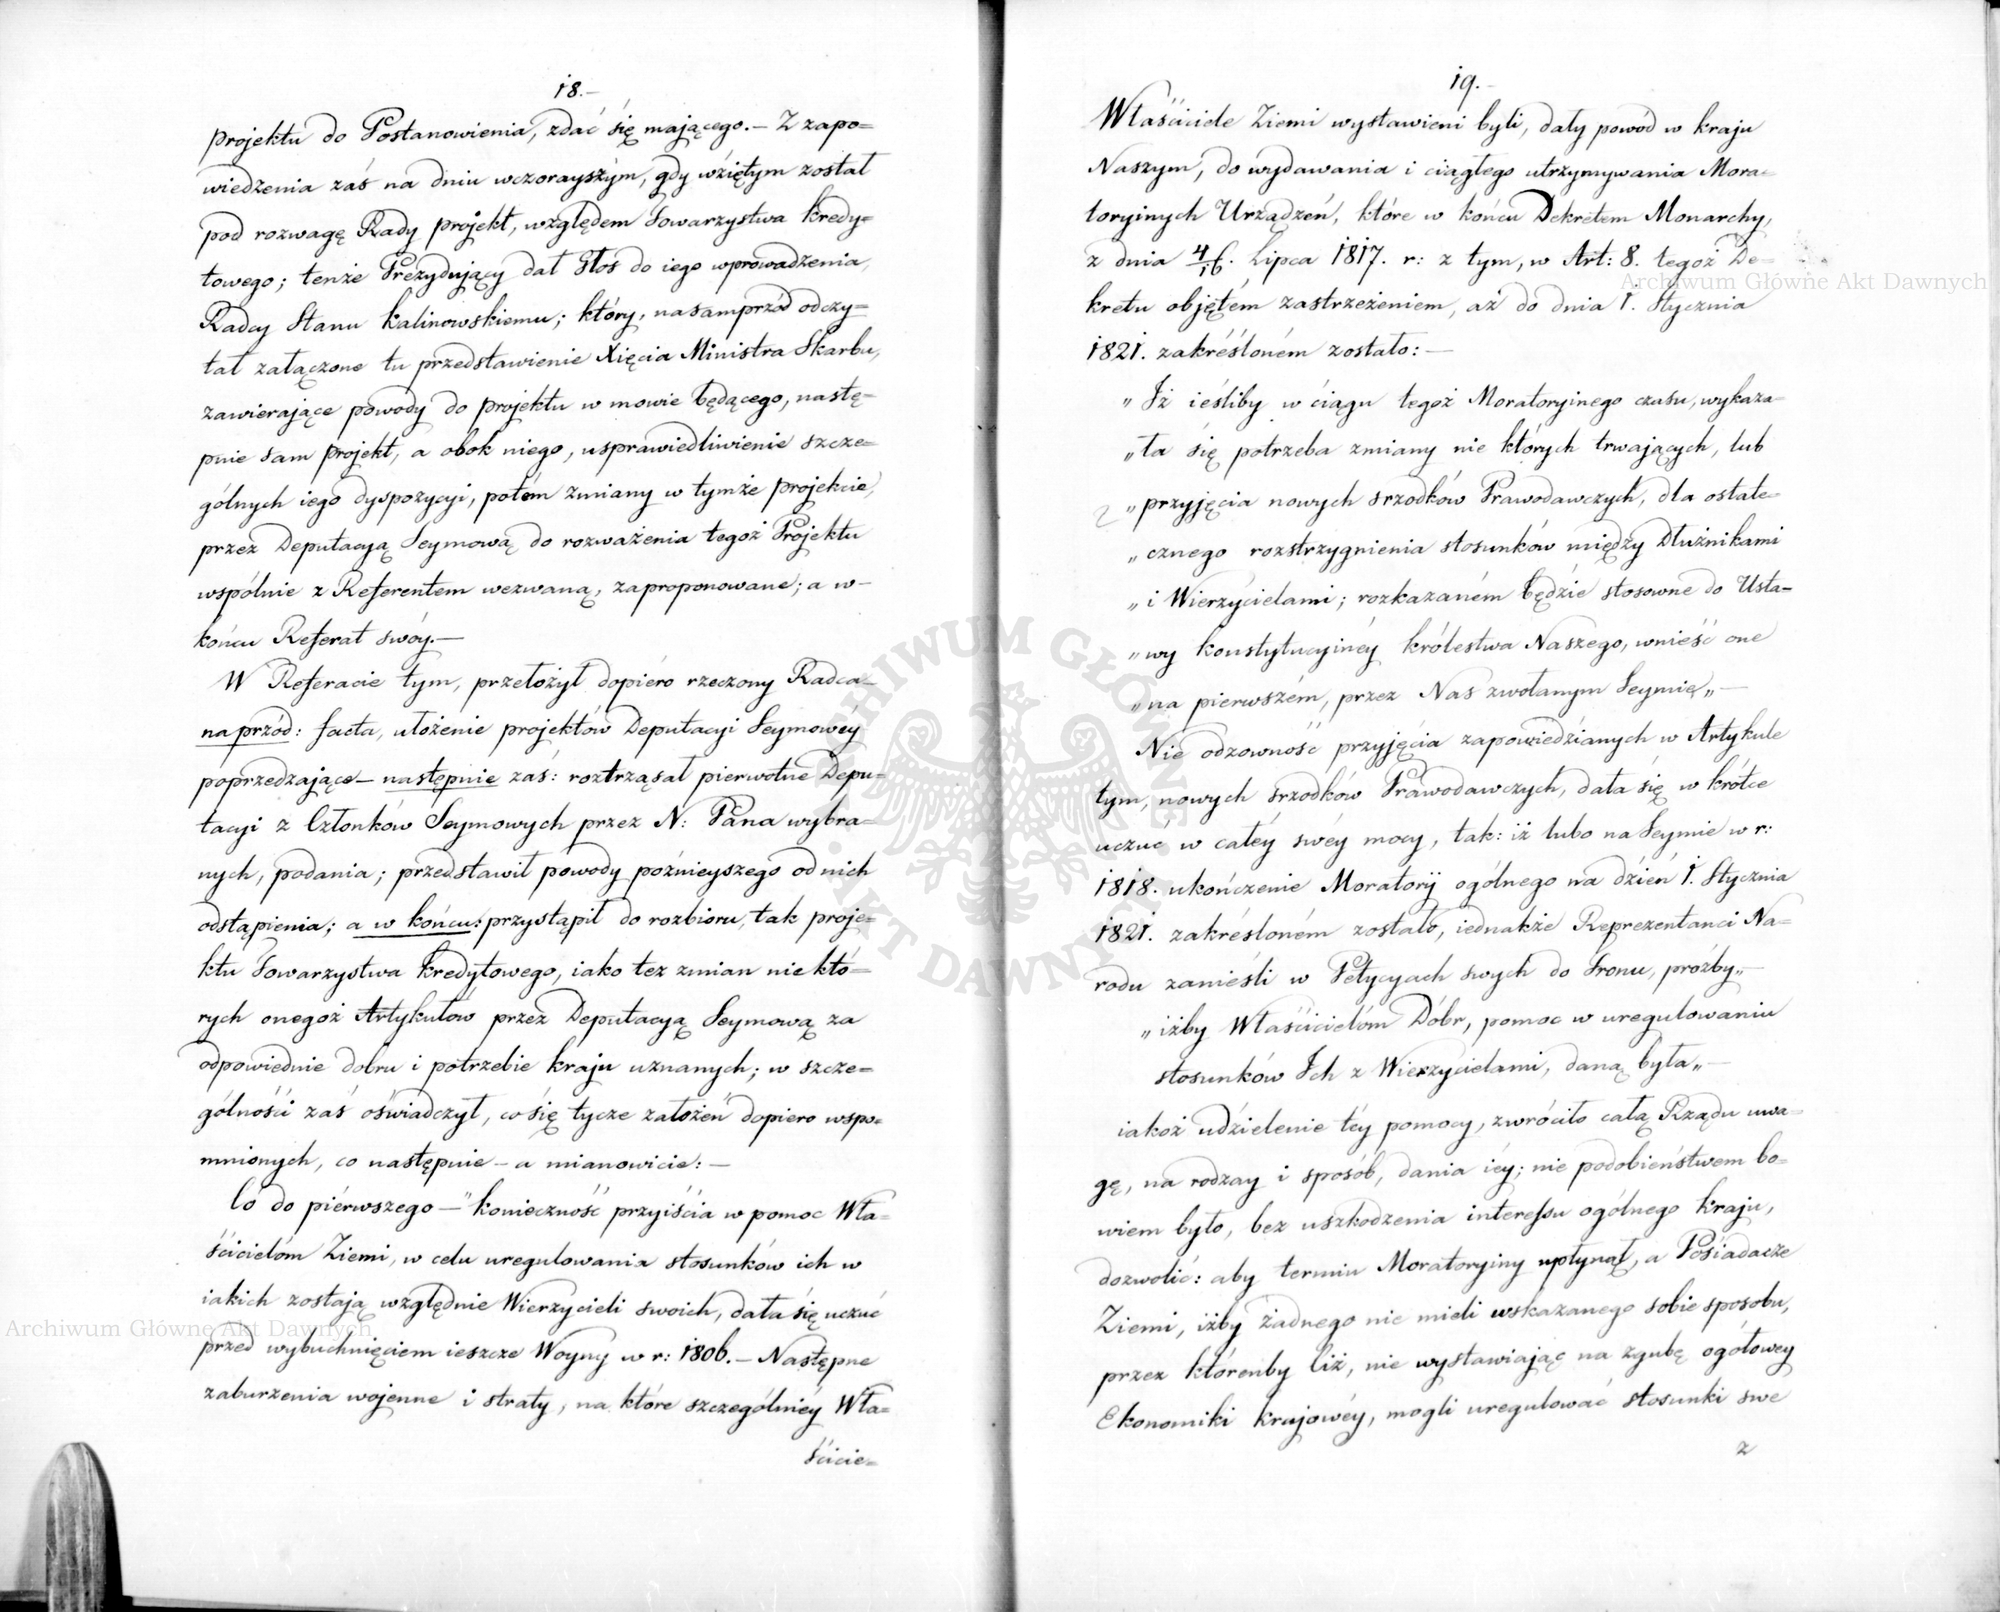 18.—
projektu do Postanowienia, zdać się mającego.— Z zapo=
wiedzenia zaś na dniu wczorayszym, gdy wziętym został
pod rozwagę Rady projekt, względem Towarzystwa Kredy=
towego; tenże Prezydujący dał Głos do iego wprowadzenia,
Radcy Stanu Kalinowskiemu; który, nasamprzód odczy=
tał załączone tu przedstawienie Xięcia Ministra Skarbu,
zawierające powody do projektu w mowie będącego, nastę=
pnie sam projekt, a obok niego, usprawiedliwienie szcze=
gólnych iego dyspozycyi, potém zmiany w tymże projekcie,
przez Deputacyą Seymową do rozważenia tegoż Projektu
wspólnie z Referentem wezwaną, zaproponowane; a w—
końcu Referat swóy.—
W Referacie tym, przełożył dopiéro rzeczony Radca—
naprzód: facta, ułożenie projektów Deputacyi Seymowéy
poprzedzające— następnie zaś: roztrząsał pierwotne Depu=
tacyi z Członków Seymowych przez N: Pana wybra=
nych, podania; przedstawił powody poźnieyszego od nich
odstąpienia; a w końcu: przystąpił do rozbioru, tak proje=
ktu Towarzystwa Kredytowego, iako też zmian niektó=
rych onegoż Artykułów przez Deputacyą Seymową za
odpowiednie dobru i potrzebie kraju uznanych; w szcze=
gólności zaś oświadczył, co się tycze założeń dopiero wspo=
mnionych, co następnie— a mianowicie:—
Co do piérwszego — "konieczność przyiścia w pomoc Wła=
ścicielóm Ziemi, w celu uregulowania stosunków ich w
iakich zostają względnie Wierzycieli swoich, dała się uczuć
przed wybuchnięciem ieszcze Woyny w r: 1806.— Następne
zaburzenia wojenne i straty, na które szczególniéy Wła=
ścicie=
19.—
Właściciele Ziemi wystawieni byli, dały powód w kraju
Naszym, do wydawania i ciągłego utrzymywania Mora=
toryinych Urządzeń, które w końcu Dekretem Monarchy,
z dnia 4/16. Lipca 1817. r: z tym, w Art: 8. tegoż De=
kretu objętém zastrzeżeniem, aż do dnia 1. Stycznia
1821. zakréślóném zostało:—
"Iż ieśliby w ciągu tegoż Moratoryinego czasu, wykaza=
"ła się potrzeba zmiany nie których trwających, lub
"przyjęcia nowych srzodków Prawodawczych, dla ostate=
"cznego rozstrzygnienia stosunków między Dłużnikami
"i Wierzycielami; rozkazaném będzie stosowne do Usta=
"wy Konstytucyinéy Królestwa Naszego, wnieść one
"na pierwszém, przez Nas zwołanym Seymię"—
Nie odzowność przyjęcia zapowiedzianych w Artykule
tym, nowych srzodków Prawodawczych, dała się w krótce
uczuć w całéy swéy mocy, tak: iż lubo na Seymie w r:
1818. ukończenie Moratorij ogólnego na dzień 1. Stycznia
1821. zakréślóném zostało, iednakże Reprezentanci Na=
rodu zanieśli w Petycyach swych do Tronu, próźby"—
"iżby Właścicielóm Dóbr, pomoc w uregulowaniu
stosunków Ich z Wierzycielami, daną była"—
iakoż udzielenie téy pomocy, zwróciło całą Rządu uwa=
gę, na rodzay i sposób, dania iéy; nie podobieństwem bo=
wiem było, bez uszkodzenia interessu ogólnego Kraju,
dozwolić: aby termin Moratoryiny upłynął, a Posiadacze
Ziemi, iżby żadnego nie mieli wskazanego sobie sposobu,
przez którenby Ciż, nie wystawiając na zgubę ogółowey
Ekonomiki krajowéy, mogli uregulować stosunki swe
z
Archiwum Główne Akt Dawnych
Archiwum Główne Akt Dawnych
ARCHIWUM GŁÓWNE AKT DAWNYCH